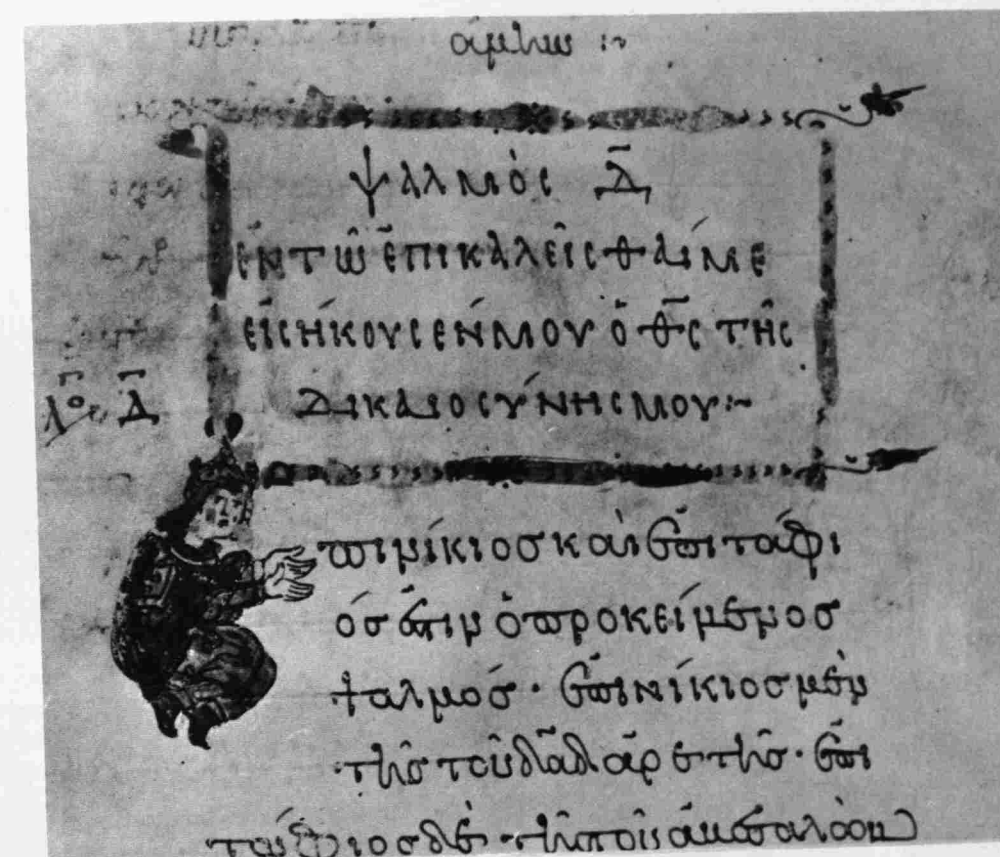 ἀμήν :~
ψαλμὸς Δ̄
ἐν τῷ ἐπικαλεῖσθαί με
εἰσήκουσέν μου ὁ θ̄ς τῆς
δικαιοσύνης μου :~
Δ̄
πινίκιος καὶ ἐπιτάφι
ός ἐστιν ὁ προκείμενος
ψαλμός · ἐπινίκιος μὲν
τῆς τοῦ δᾱδ ἀρετῆς · ἐπι
τάφιος δὲ